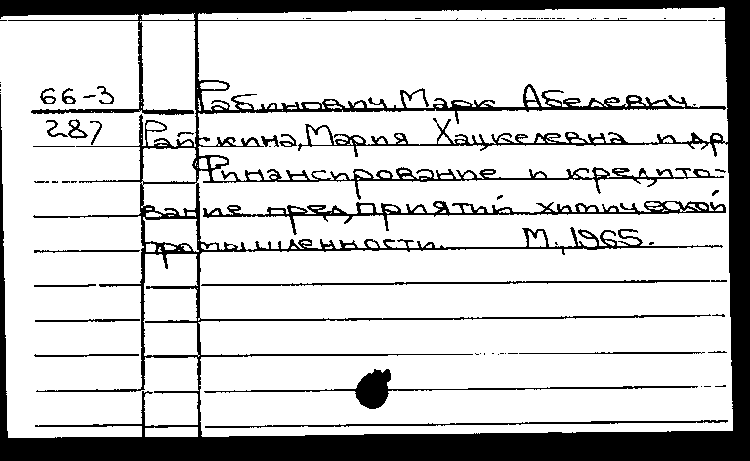 66-3 Рабинович, Марк Абелевич.
287 Райскина, Мария Хацкелевна и др
Финансирование и кредито-
вание предприятий химической
промышленности. М., 1965.